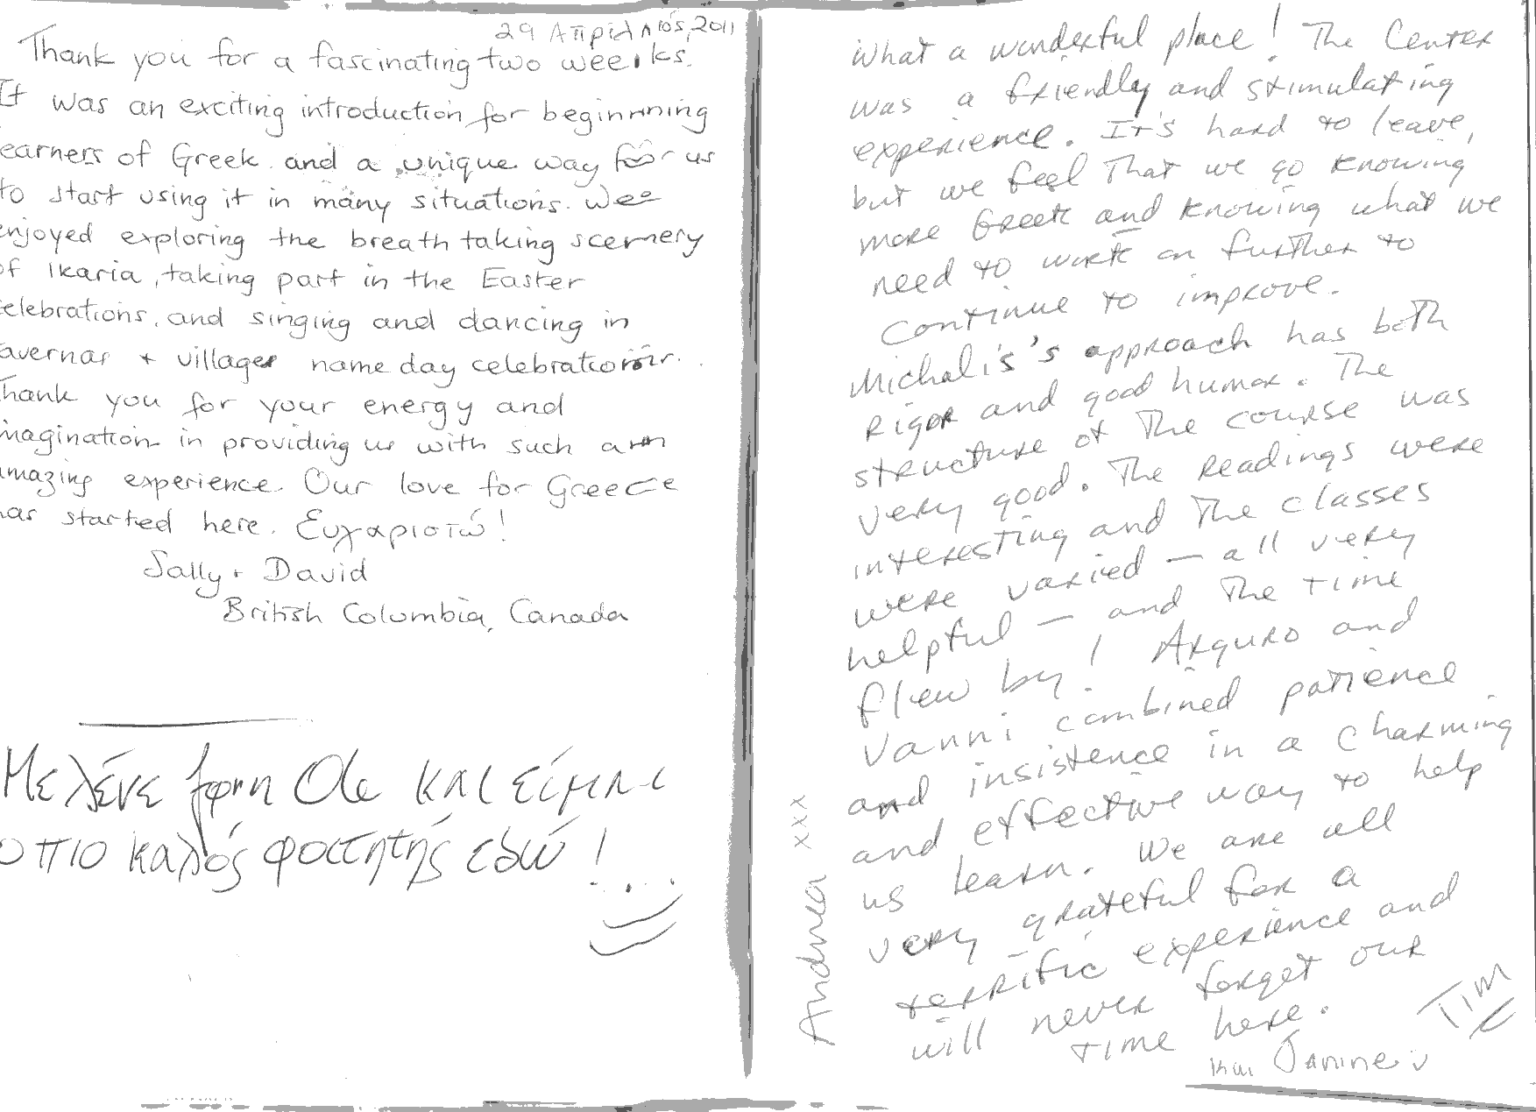 29 Απριλιός, 2011
Thank you for a fascinating two weeks.
It was an exciting introduction for beginning
earners of Greek and a unique way for us
to start using it in many situations. We
enjoyed exploring the breath taking scenery
of Ikaria, taking part in the Easter
elebrations, and singing and dancing in
avernas + village name day celebrations.
Thank you for your energy and
magination in providing us with such an
amazing experience. Our love for Greece
has started here. Ευχαριστώ!
Sally + David
British Columbia, Canada
Με λένε και είμαι
ο πιο καλός φοιτητής εδώ!...
What a wonderful place! The Center
was a friendly and stimulating
experience. It's hard to leave,
but we feel that we go knowing
more Greek and knowing what we
need to work on further to
continue to improve.
Michalis's approach has both
rigor and good humor. The
structure of the course was
very good. The readings were
interesting and the classes
were varied — all very
helpful — and the time
flew by! Arguro and
Vanni combined patience
and insistence in a charming
and effective way to help
us learn. We are all
very grateful for a
terrific experience and
will never forget our
time here.
Tim
και Janine
Andrea xxx